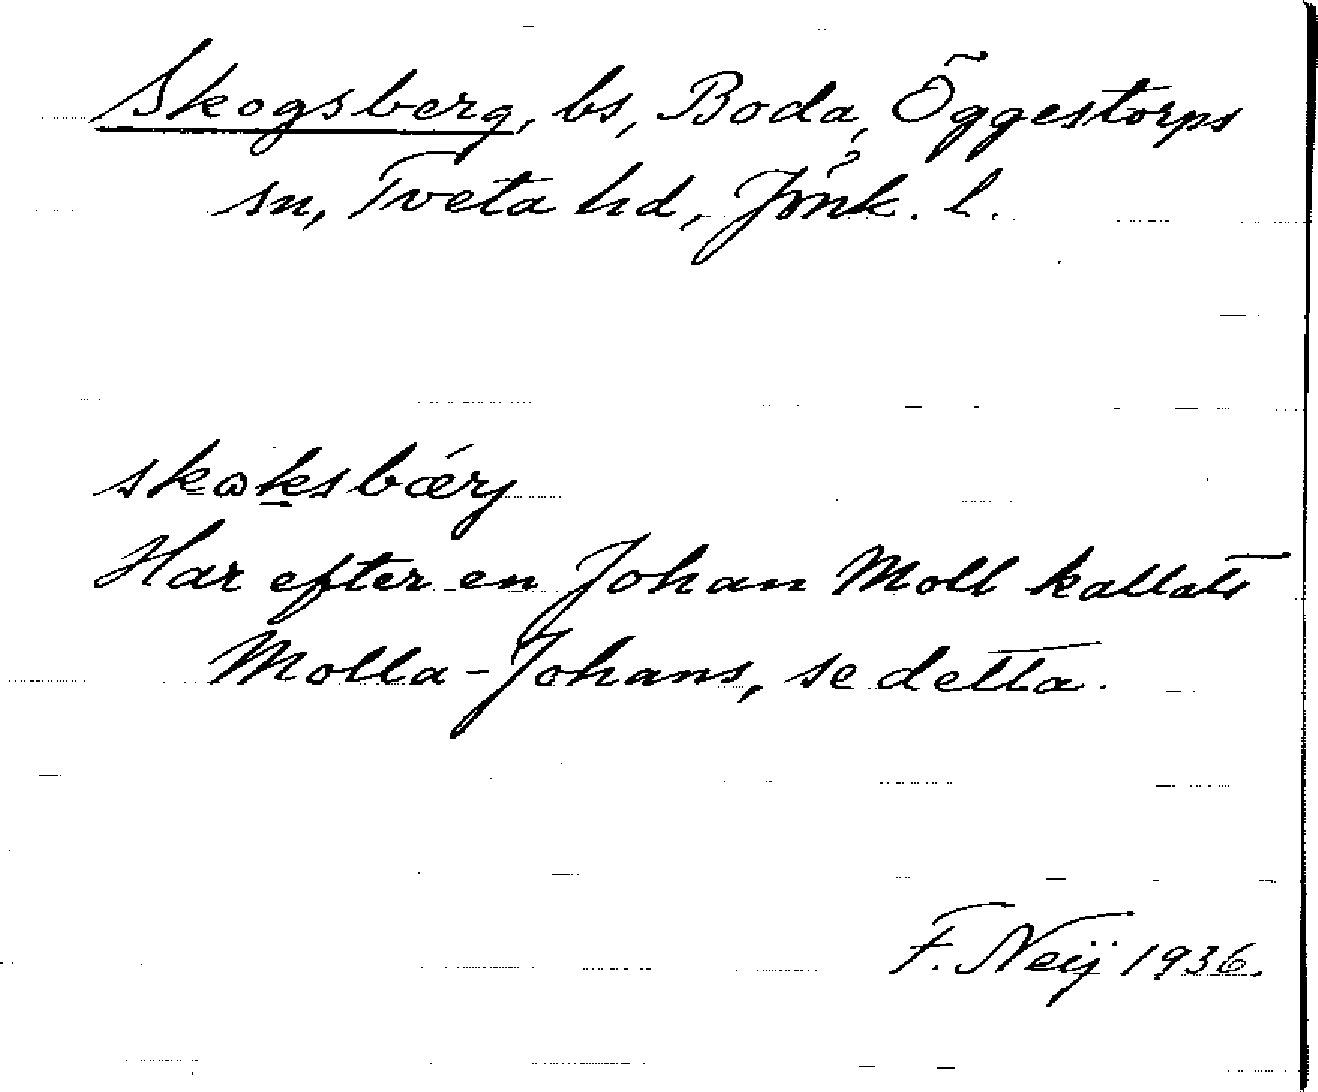 Skogsberg, bs, Boda, Öggestorps
sn, Tveta hd, Jönk. l.
skɷksbǽrj
Har efter en Johan Moll kallats
Molla-Johans, se detta.
F. Neij 1936.